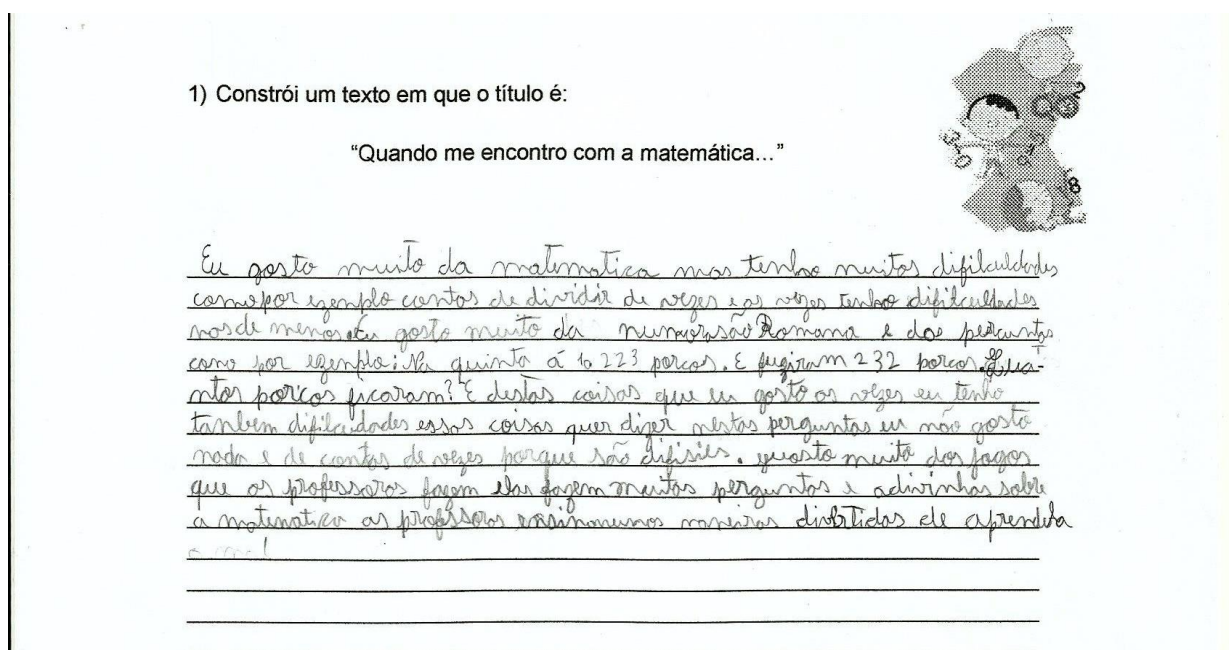 1) Constrói um texto em que o título é:
“Quando me encontro com a matemática...”
Eu gosto muito da matematica mas tenho muitas
como por egemplo contas de dividir de vezes e as vezes tenho
nos de menos. Eu gosto muito da numerasão Romana e das
como por egemplo: Na quinta á 10 223 porcos. E fugiram 232 porcos. Qua-
ntos porcos ficaram? E destas coisas que eu gosto as vezes eu tenho
tanbem essas coisas quer dizer nestas perguntas eu não gosto
nada e de contas de vezes porque são difisies. muito dos jogos
que as professoras fazem elas fazem muitas perguntas e adivinhas sobre
a matematica as professoras maneiras divertidas de